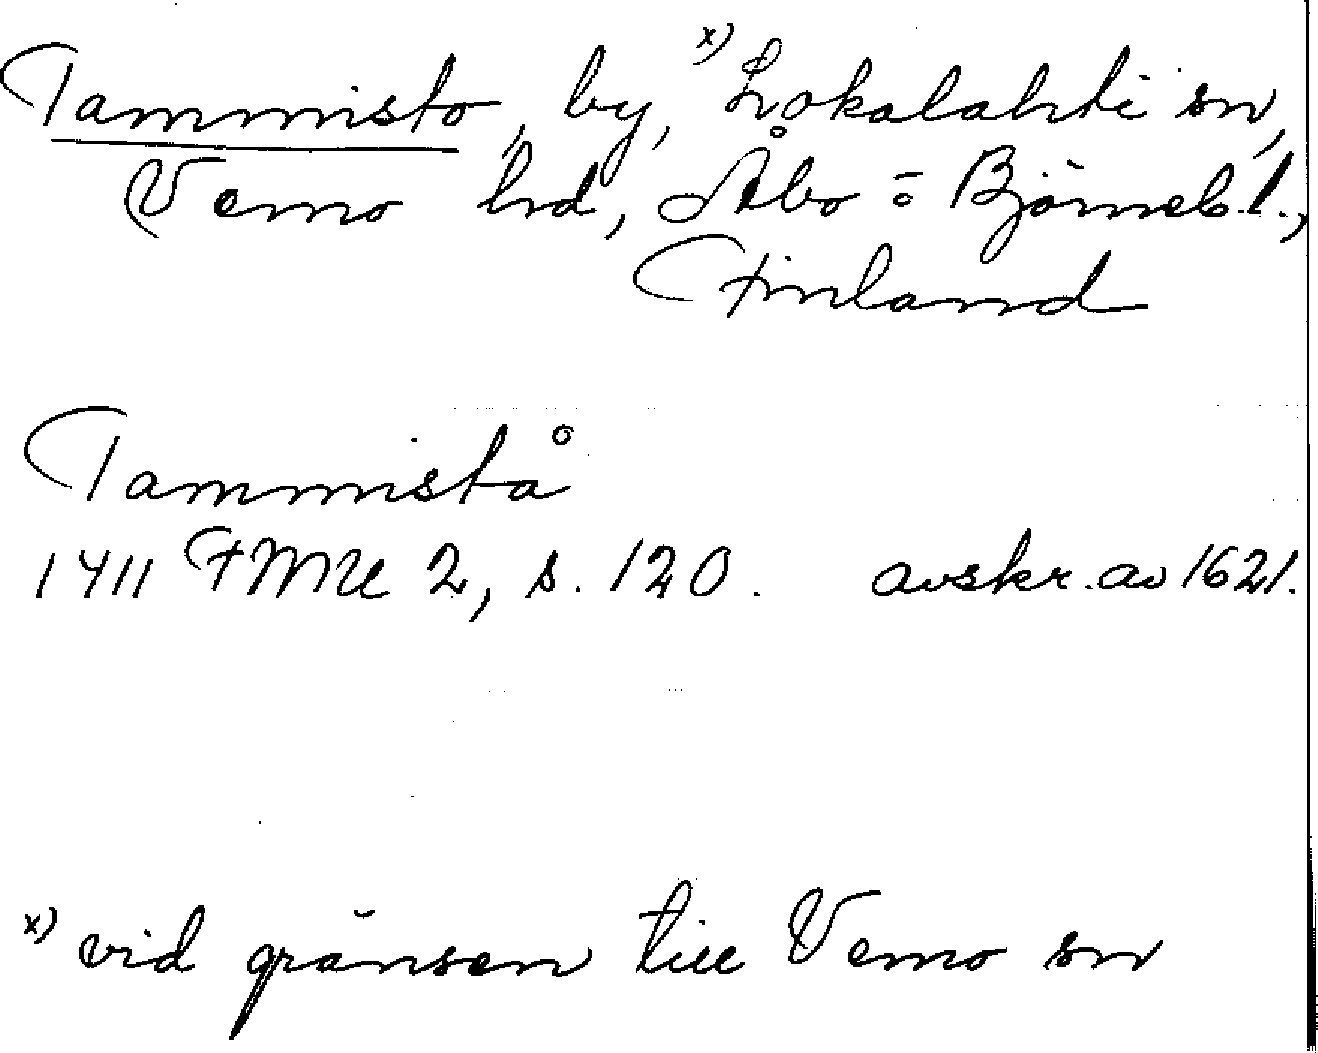 Tammisto, by, x) Lokalahti sn,
Vemo hd, Åbo = Björneb. l.,
Finland
Tammistå
1411 FMU 2, s. 120. avskr. av 1621.
x) vid gränsen till Vemo sn